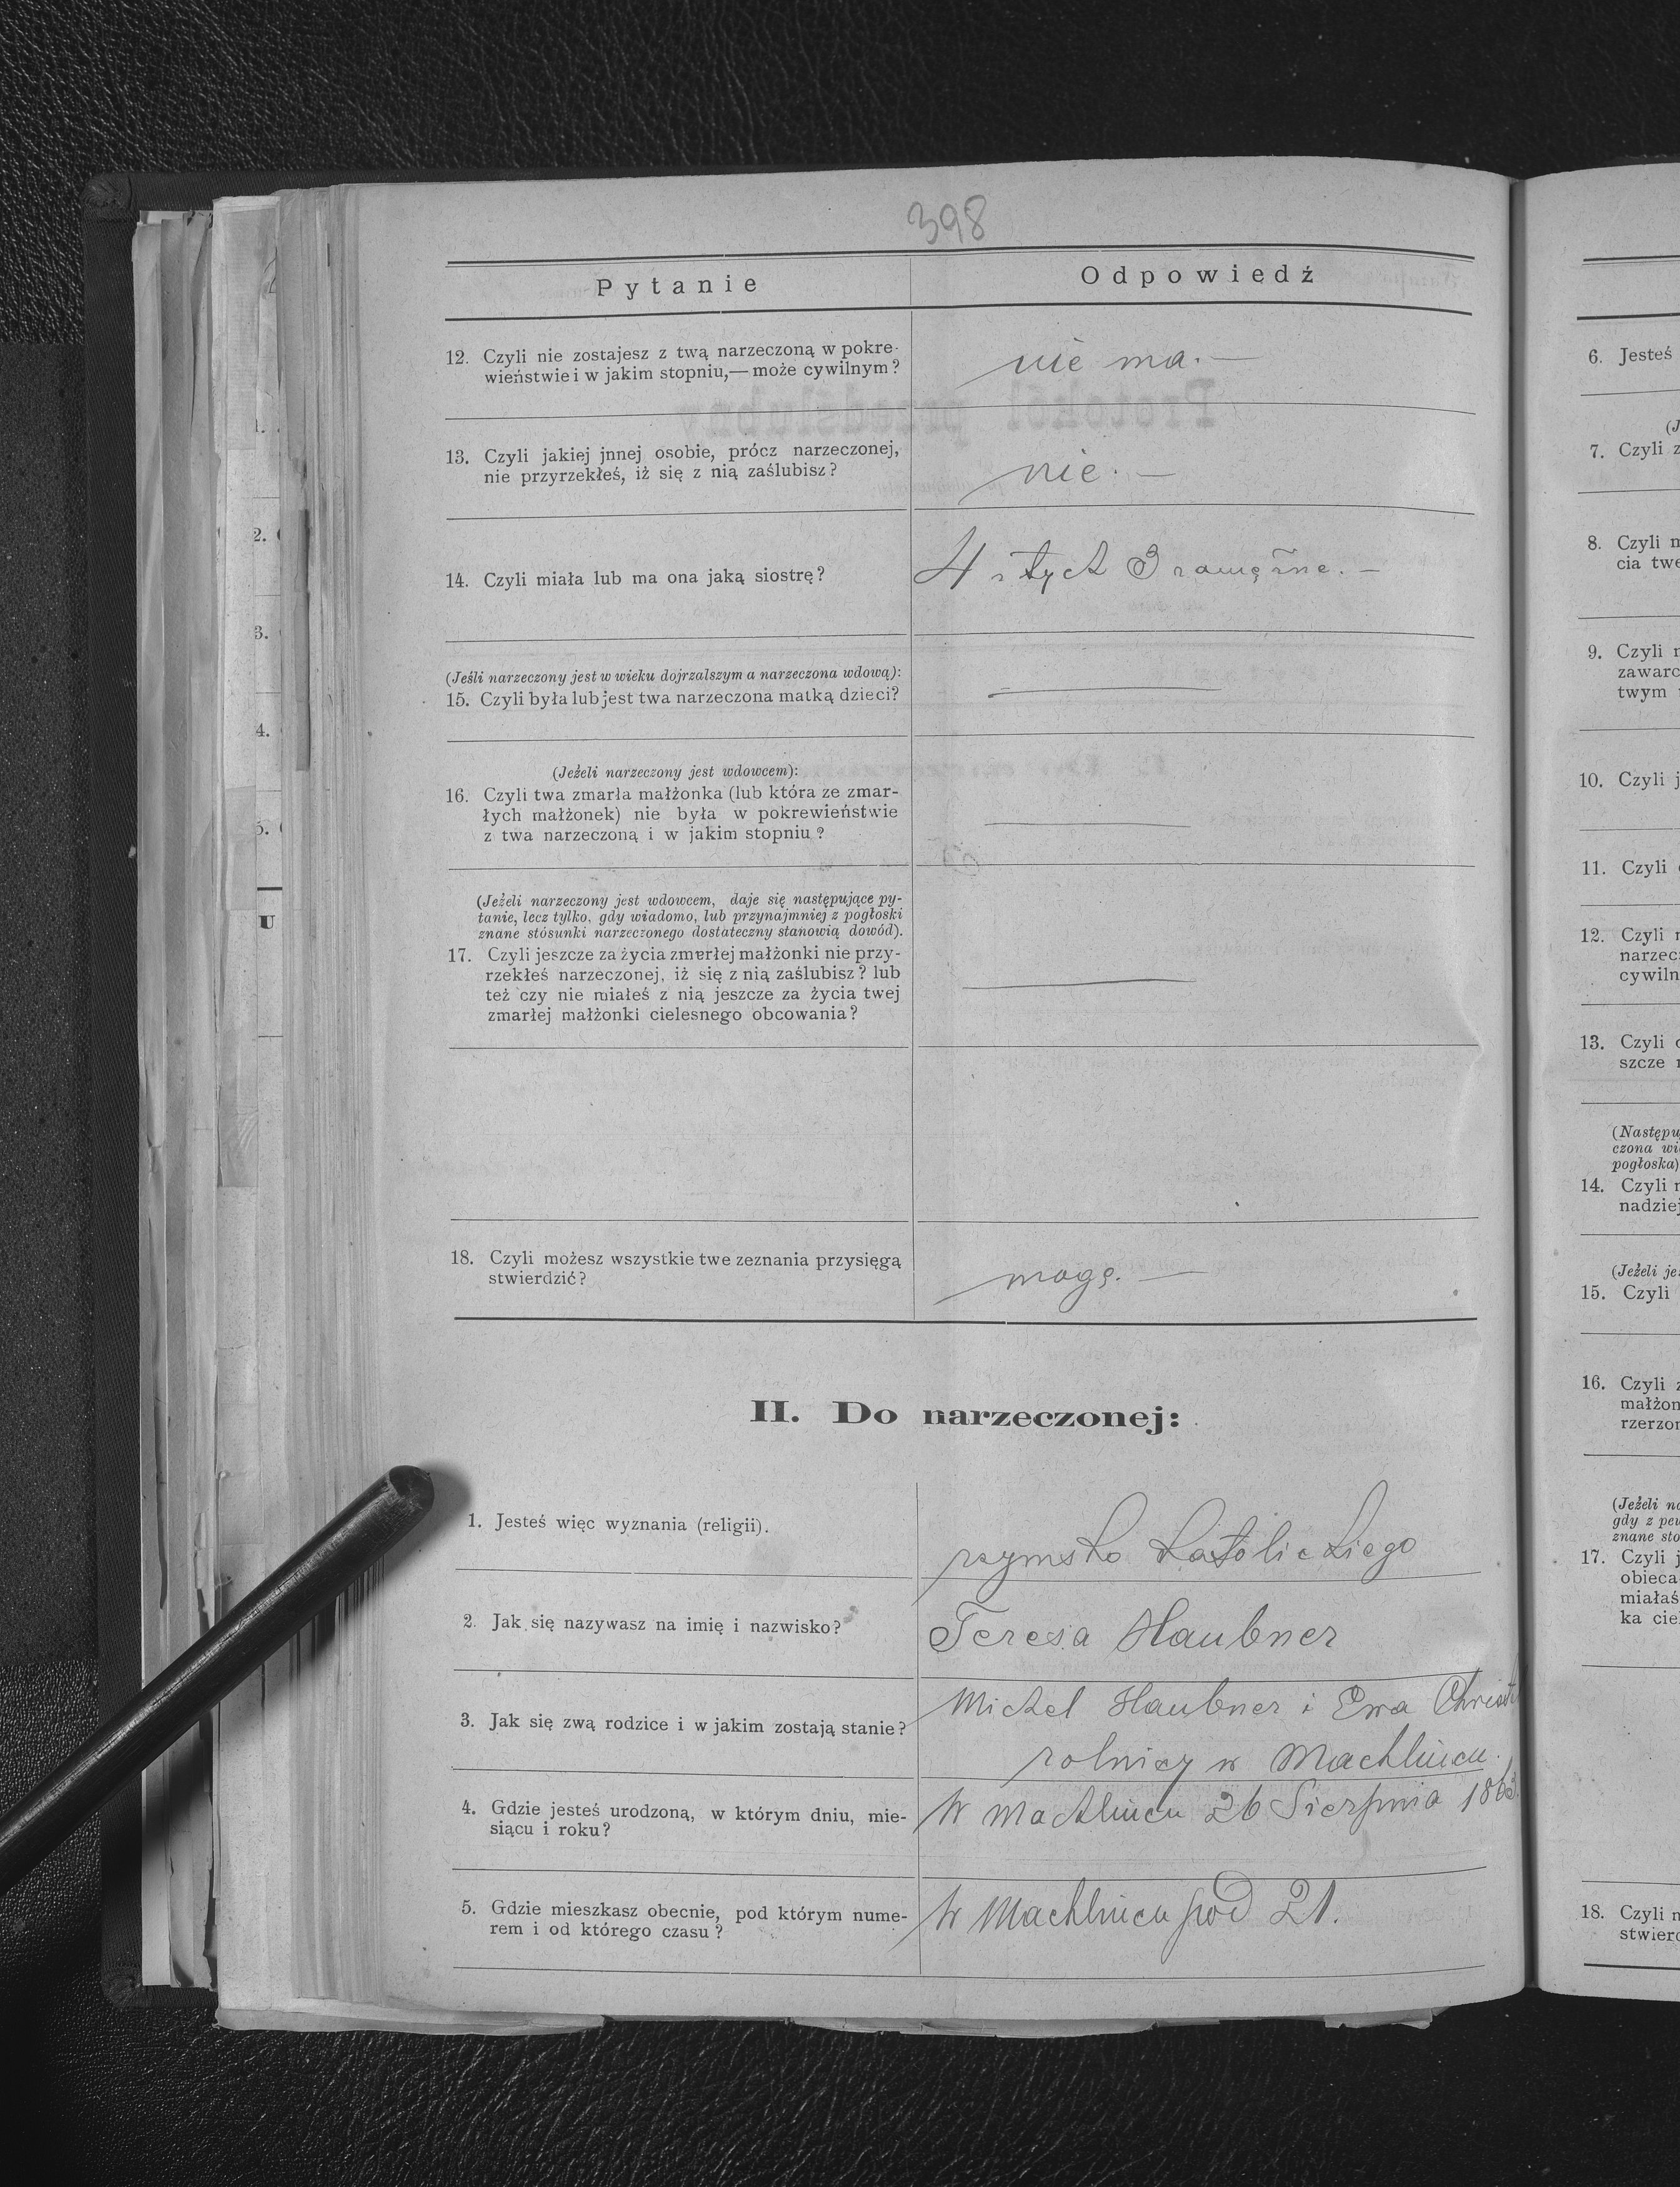 398
Pytanie
Odpowiedź
12. Czyli nie zostajesz z twą narzeczoną w pokre-
wieństwie i w jakim stopniu,— może cywilnym?
nie ma. —
13. Czyli jakiej jnnej osobie, prócz narzeczonej,
nie przyrzekłeś, iż się z nią zaślubisz?
nie. —
14. Czyli miała lub ma ona jaką siostrę?
4 z tych 3 zamężne. —
(Jeśli narzeczony jest w wieku dojrzalszym a narzeczona wdową):
15. Czyli była lub jest twa narzeczona matką dzieci?
(Jeżeli narzeczony jest wdowcem):
16. Czyli twa zmarła małżonka (lub która ze zmar-
łych małżonek) nie była w pokrewieństwie
z twa narzeczoną i w jakim stopniu?
(Jeżeli narzeczony jest wdowcem, daje się następujące py-
tanie, lecz tylko, gdy wiadomo, lub przynajmniej z pogłoski
znane stósunki narzeczonego dostateczny stanowią dowód).
17. Czyli jeszcze za życia zmarłej małżonki nie przy-
rzekłeś narzeczonej, iż się z nią zaślubisz? lub
też czy nie miałeś z nią jeszcze za życia twej
zmarłej małżonki cielesnego obcowania?
18. Czyli możesz wszystkie twe zeznania przysięgą
stwierdzić?
mogę. —
II. Do narzeczonej:
1. Jesteś więc wyznania (religii).
rzymsko katolickiego
2. Jak się nazywasz na imię i nazwisko?
Teresa Haubner
3. Jak się zwą rodzice i w jakim zostają stanie?
Michel Haubner i Ewa
rolnicy w Machlincu.
4. Gdzie jesteś urodzoną, w którym dniu, mie-
siącu i roku?
W Machlincu 26 Sierpnia
5. Gdzie mieszkasz obecnie, pod którym nume-
rem i od którego czasu?
W Machlincu pod 21.
6. Jesteś
7. Czyli z
8. Czyli
cia twe
9. Czyli
zawarc
twym
10. Czyli j
11. Czyli
12. Czyli
narzec
cywiln
13. Czyli
szcze
(Następu
czona
pogłoska)
14. Czyli
nadziej
(Jeżeli
15. Czyli
16. Czyli z
małżon
rzerzon
(Jeżeli
gdy z
znane
17. Czyli j
obieca
miałaś
ka
18. Czyli